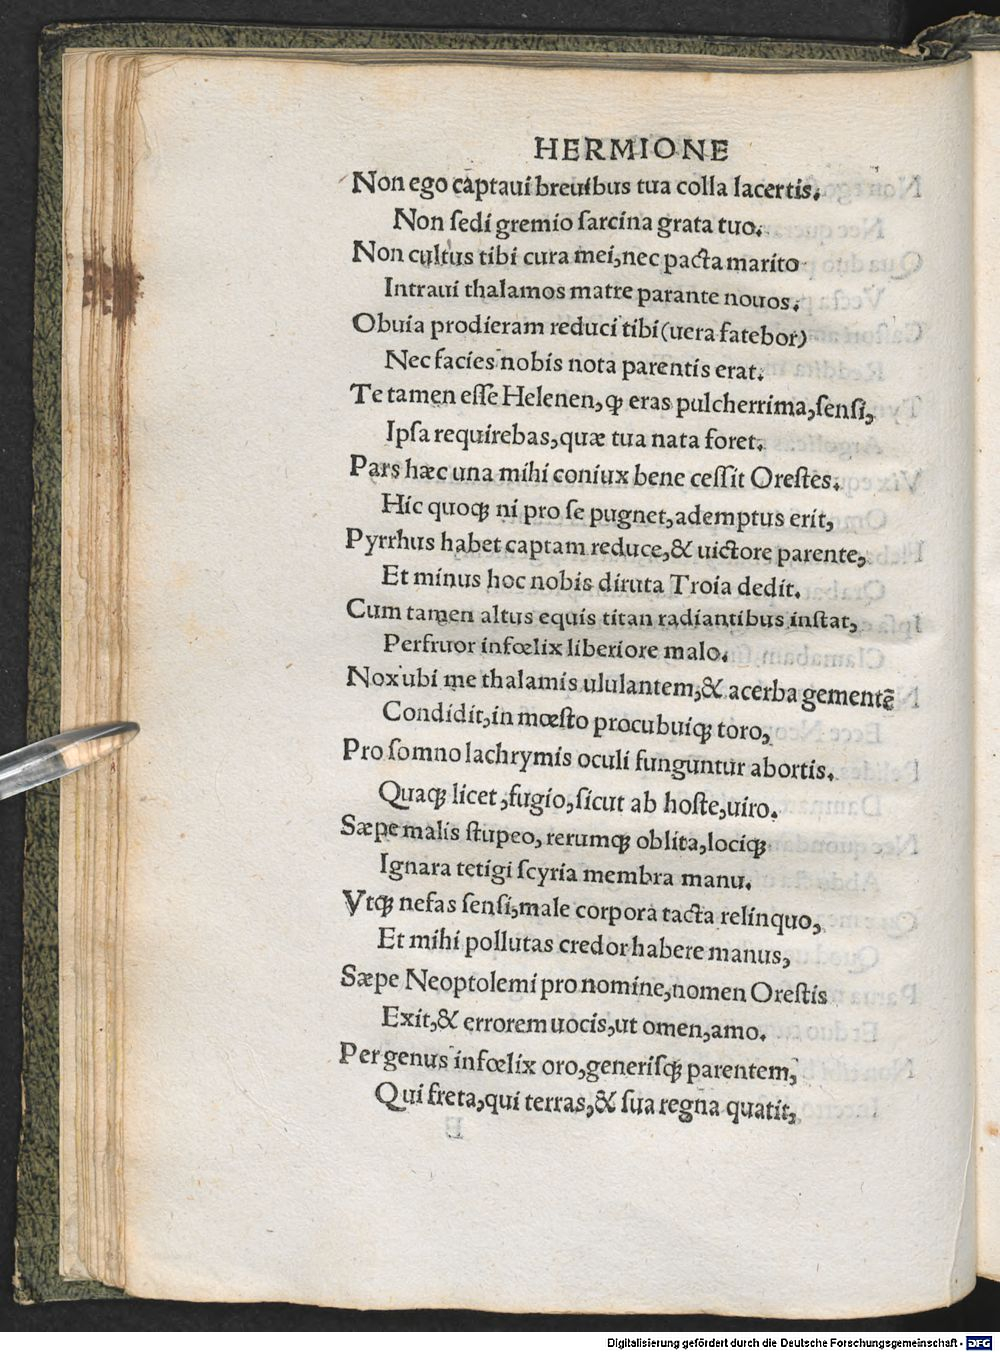 HERMIONE
Non ego captaui breuibus tua colla lacertis.
Non ſedi gremio ſarcina grata tuo.
Non cultus tibi cura mei, nec pacta marito
Intraui thalamos matre parante nouos.
Obuia prodieram reduci tibi (uera fatebor)
Nec facies nobis nota parentis erat.
Te tamen eſſe Helenen, ꝙ eras pulcherrima, ſenſi,
Ipſa requirebas, quæ tua nata foret.
Pars hæc una mihi coniux bene ceſſit Oreſtes.
Hic quoqꝫ ni pro ſe pugnet, ademptus erit,
Pyrrhus habet captam reduce, & uictore parente,
Et minus hoc nobis diruta Troia dedit.
Cum tamen altus equis titan radiantibus inſtat,
Perfruor infœlix liberiore malo.
Nox ubi me thalamis ululantem, & acerba gementẽ
Condidit, in mœſto procubuiqꝫ toro,
Pro ſomno lachrymis oculi funguntur abortis.
Quaqꝫ licet, fugio, ſicut ab hoſte, uiro.
Sæpe malis ſtupeo, rerumqꝫ oblita, lociqꝫ
Ignara tetigi ſcyria membra manu.
Vtqꝫ nefas ſenſi, male corpora tacta relinquo,
Et mihi pollutas credor habere manus,
Sæpe Neoptolemi pro nomine, nomen Oreſtis
Exit, & errorem uocis, ut omen, amo.
Per genus infœlix oro, generiſqꝫ parentem,
Qui freta, qui terras, & ſua regna quatit,
Digitalisierung gefördert durch die Deutsche Forschungsgemeinschaft - DFG